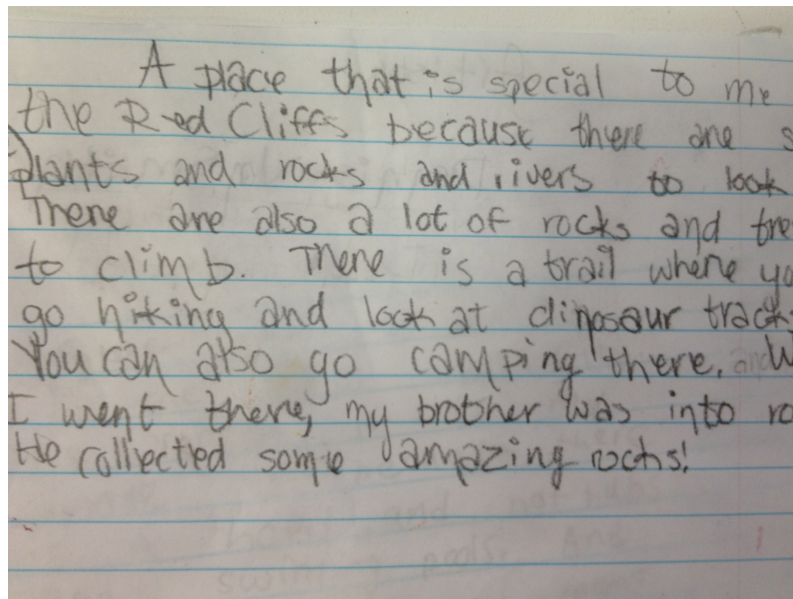 A place that is special to me
the Red Cliffs because there are s
plants and rocks and rivers to look
There are also a lot of rocks and tre
to climb. There is a trail where yo
go hiking and look at dinosaur track
You can also go camping there. W
I went there, my brother was into ro
He collected some amazing rocks!